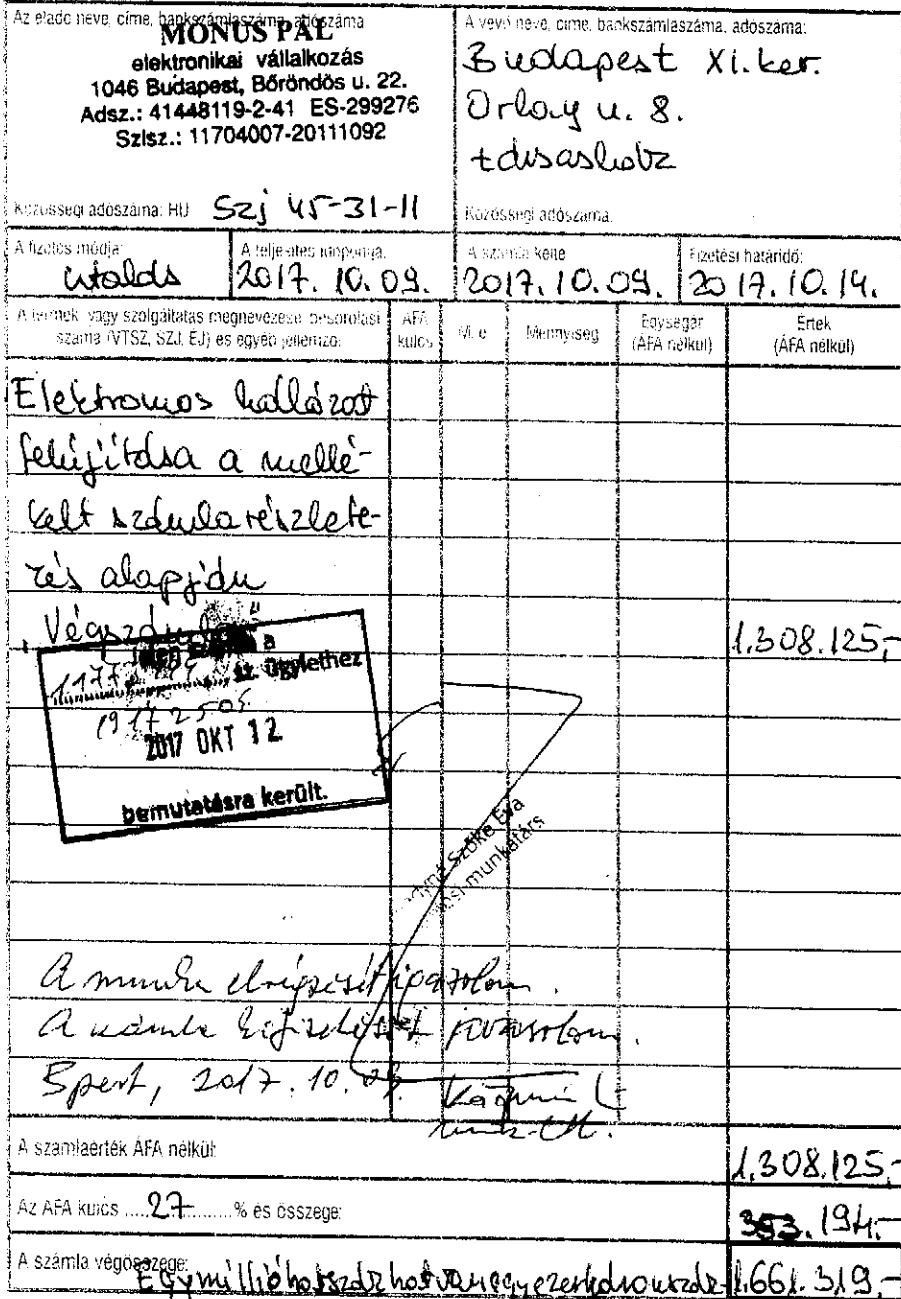 Az eladó neve, címe, bankszámlaszáma, adószáma
MÓNUS PÁL
elektronikai vállalkozás
1046 Budapest, Bőröndös u. 22.
Adsz.: 41448119-2-41 ES-299276
Szlsz.: 11704007-20111092
Közösségi adószáma: HU Szj 45-31-11
A vevő neve, címe, bankszámlaszáma, adószáma:
Budapest XI. ker.
Orlay u. 8.
társasház
Közösségi adószáma:
A fizetés módja:
utalás
A teljesítés időpontja:
2017. 10. 09.
A számla kelte
2017. 10. 09.
Fizetési határidő:
2017. 10. 14.
A termék vagy szolgáltatás megnevezése, besorolási
száma (VTSZ, SZJ, ÉJ) és egyéb jellemző:
ÁFA
kulcs
M. e.
Mennyiség
Egységár
(ÁFA nélkül)
Érték
(ÁFA nélkül)
Elektromos hálózat
felújítása a mellé-
kelt számlarészlete-
zés alapján
„Végszámla” 1.308.125,-
a
sz. ügylethez
2017 OKT 12
bemutatásra került.
Szőke Éva
munkatárs
A munka elvégzését igazolom.
A számla kifizetését javasolom.
Bpest, 2017. 10.
A számlaérték ÁFA nélkül: 1.308.125,-
Az ÁFA kulcs 27 % és összege: 353.194,-
A számla végösszege: 1.661.319,-